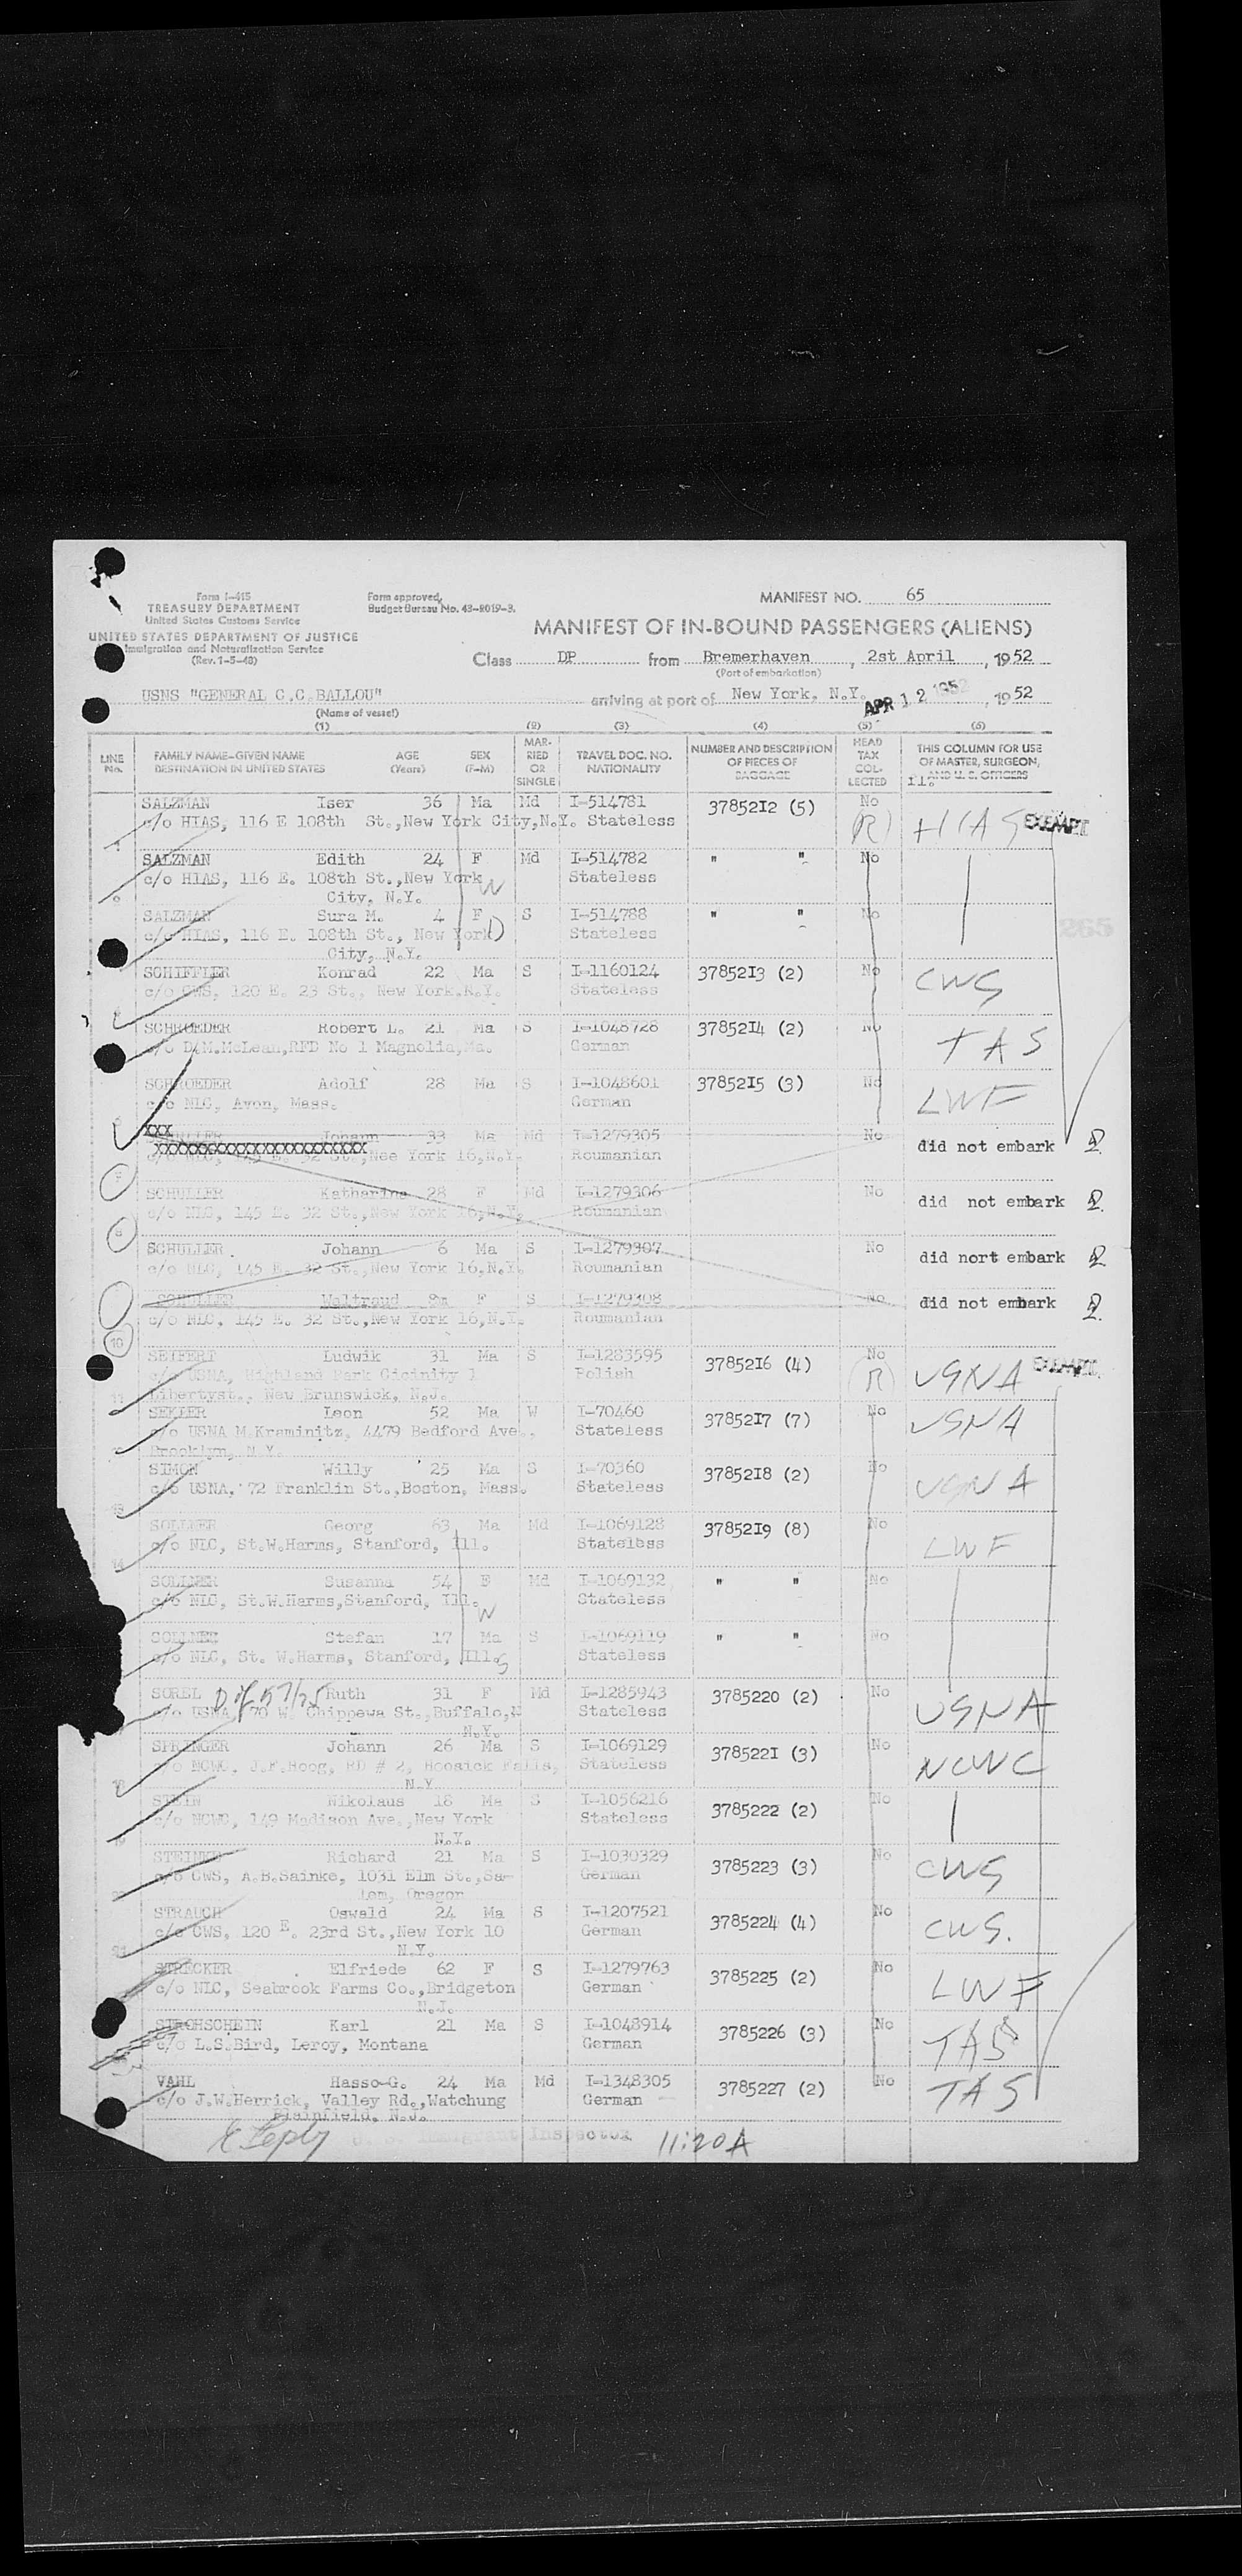 Form I-415
TREASURY DEPARTMENT
United States Customs Service
UNITED STATES DEPARTMENT OF JUSTICE
Immigration and Naturalization Service
(Rev. 1-5-48)
Form approved.
Budget Bureau No. 43-R019-3.
MANIFEST NO. 65
MANIFEST OF IN-BOUND PASSENGERS (ALIENS)
Class DP from Bremerhaven, 2st April, 1952
(Port of embarkation)
USNS "GENERAL C.C.BALLOU" arriving at port of New York, N.Y. APR 12 1952, 1952
(Name of vessel)
(1) (2) (3) (4) (5) (6)
LINE No.
FAMILY NAME-GIVEN NAME AGE SEX
DESTINATION IN UNITED STATES (Years) (F-M)
MAR-RIED OR SINGLE
TRAVEL DOC. NO. NATIONALITY
NUMBER AND DESCRIPTION OF PIECES OF BAGGAGE
HEAD TAX COL-LECTED
THIS COLUMN FOR USE OF MASTER, SURGEON, AND U. S. OFFICERS
SALZMAN Iser 36 Ma Md I-514781 3785212 (5) No
c/o HIAS, 116 E 108th St.,New York City,N.Y. Stateless (R) HIAS EXEMPT
SALZMAN Edith 24 F Md I-514782 " " No
c/o HIAS, 116 E. 108th St.,New York Stateless
City, N.Y. W
SALZMAN Sura M. 4 F S I-514788 " " No
c/o HIAS, 116 E. 108th St., New York Stateless
City, N.Y. D
265
SCHIFFLER Konrad 22 Ma S I-1160124 3785213 (2) No CWS
c/o CWS, 120 E. 23 St., New York.N.Y. Stateless
SCHROEDER Robert L. 21 Ma S I-1048728 3785214 (2) No TAS
c/o D.M.McLean,RFD No 1 Magnolia, German
SCHROEDER Adolf 28 Ma S I-1048601 3785215 (3) No LWF
c/o NLC, Avon, Mass. German
XXX Johann 33 Ma Md I-1279305 No did not embark
32 St.,Nee York 16,N.Y. Roumanian
SCHULLER Katharina 28 F Md I-1279306 No did not embark
c/o NLC, 145 E. 32 St.,New York 16,N.Y. Roumanian
SCHULLER Johann 6 Ma S I-1279307 No did nort embark
c/o NLC, 145 E. 32 St.,New York 16,N.Y. Roumanian
SCHULLER Waltraud 8m F S I-1279308 No did not embark
c/o NLC, 145 E. 32 St.,New York 16,N.Y. Roumanian
10
SEIFERT Ludwik 31 Ma S I-1283595 3785216 (4) No USNA EXEMPT
c/o USNA, Highland Park Cicinity 1 Polish (R)
Libertyst., New Brunswick, N.J.
SEKLER Leon 52 Ma W I-70460 3785217 (7) No USNA
c/o USNA M.Kraminitz, 4479 Bedford Ave., Stateless
Brooklyn, N.Y.
SIMON Willy 25 Ma S I-70360 3785218 (2) No USNA
c/o USNA, 72 Franklin St.,Boston, Mass. Stateless
SOLLNER Georg 63 Ma Md I-1069128 3785219 (8) No LWF
c/o NLC, St.W.Harms, Stanford, Ill. Stateless
SOLLNER Susanna 54 F Md I-1069132 " " No
c/o NLC, St.W.Harms,Stanford, Ill. Stateless
W
SOLLNER Stefan 17 Ma S I-1069119 " " No
c/o NLC, St. W.Harms, Stanford, Ill. Stateless
S
SOREL Ruth 31 F Md I-1285943 3785220 (2) No USNA
c/o USNA, 70 W. Chippewa St.,Buffalo, Stateless
N.Y.
SPRINGER Johann 26 Ma S I-1069129 3785221 (3) No NCWC
c/o NCWC, J.F.Hoog, RD # 2, Hoosick Falls, Stateless
N.Y.
STEIN Nikolaus 18 Ma S I-1056216 3785222 (2) No
c/o NCWC, 149 Madison Ave.,New York Stateless
N.Y.
STEINKE Richard 21 Ma S I-1030329 3785223 (3) No CWS
c/o CWS, A.B.Sainke, 1031 Elm St.,Sa- German
lem, Oregor
STRAUCH Oswald 24 Ma S I-1207521 3785224 (4) No CWS.
c/o CWS, 120 E. 23rd St.,New York 10 German
N.Y.
STRECKER Elfriede 62 F S I-1279763 3785225 (2) No LWF
c/o NLC, Seabrook Farms Co.,Bridgeton German
N.J.
STROHSCHEIN Karl 21 Ma S I-1048914 3785226 (3) No TAS
c/o L.S.Bird, Leroy, Montana German
VAHL Hasso-G. 24 Ma Md I-1348305 3785227 (2) No TAS
c/o J.W.Herrick, Valley Rd.,Watchung German
Plainfield, N.J.
Immigrant Inspector 11:20A